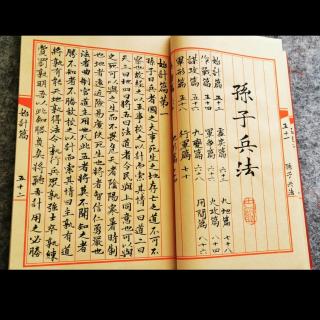 孫子兵法
始計篇
作戰篇
謀攻篇 五十六
軍形篇 五十八
虛實篇
軍爭篇
九變篇
行軍篇
九地篇
火攻篇
用間篇
孫子兵法
始計篇第一
孫子曰兵者國之大事死生之地存亡之道不可不
察也故經之以五事校之以計而索其情一曰道二曰
天三曰地四曰將五曰法道者令民與上同意也可與
之死可與之生而不畏危也天者陰陽寒暑時制
也地者遠近險易廣狹死生也將者智信仁勇嚴也
法者曲制官道主用也凡此五者將莫不聞知之者
勝不知者不勝故校之以計而索其情曰主孰有道
將孰有能天地孰得法令孰行兵眾孰強士卒孰練
賞罰孰明吾以此知勝負矣將聽吾計用之必勝
始計篇 五十三